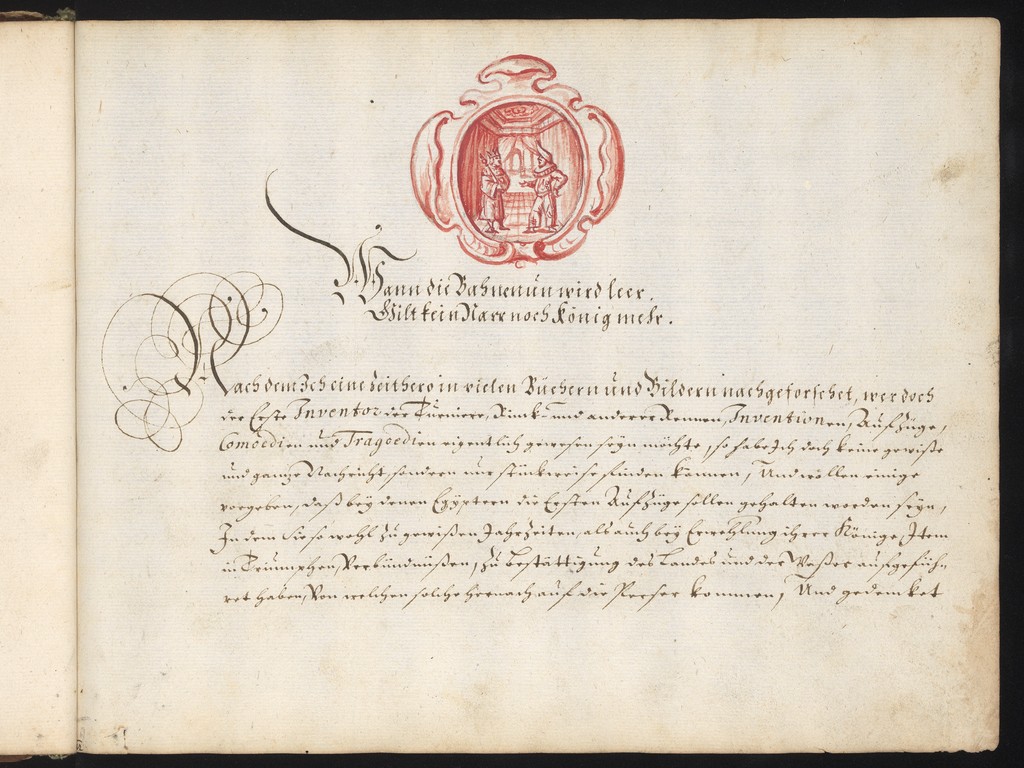 Wann die Bahn nun wird leer,
Gilt kein Narr noch König mehr.
Nach dem Ich eine Zeithero in vielen Büchern und Bildern nachgeforschet, wer doch
der Erste Inventor der Turniere, Rink- und anderer Rennen, Inventionen, Aufzüge,
Comoedien und Tragoedien eigentlich gewesen seyn möchte, so habe Ich doch keine gewiße
und gantze Nachricht, sondern nur stückweise finden können, Und wollen einige
vorgeben, daß bey denen Egyptern die Ersten Aufzüge sollen gehalten worden seyn,
In dem Sie so wohl zu gewißen Jahrzeiten, als auch bey Erwehlung ihrer Könige, Item
in Triumphen, Verbündnüßen, zu bestättigung des Landes und der Waßer aufgefüh-
ret haben, Von welchen solche hernach auf die Perser kommen, Und gedencket